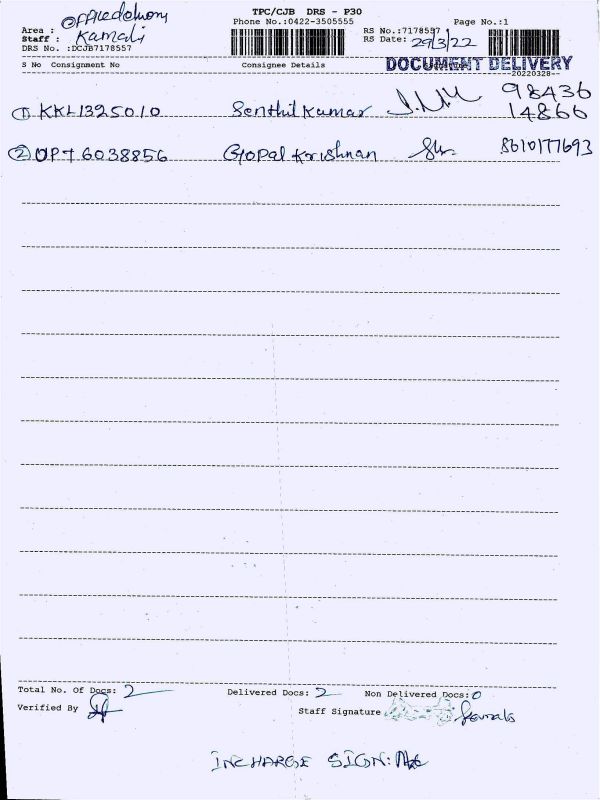 TPC/CJB DRS - P30
Area : Officedelivery Phone No.:0422-3505555 Page No.:1
Staff : Kamali RS No.:7178557
DRS No. :DCJB7178557 RS Date: 29/3/22
DOCUMENT DELIVERY
S No Consignment No Consignee Details
--20220328--
1 KKL1325010 Senthil Kumar 98436
14866
2 UPT6038856 Gopal Krishnan 8610177693
Total No. Of Docs: 2 Delivered Docs: 2 Non Delivered Docs: 0
Verified By Staff Signature Kamali
INCHARGE SIGN: